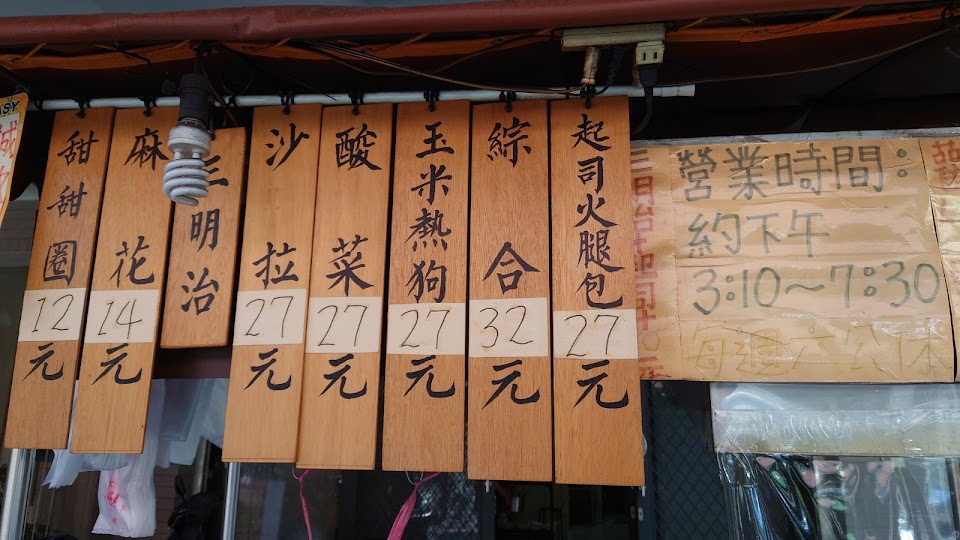 甜甜圈
12
元
麻花
14
元
三明治
沙拉
27
元
酸菜
27
元
玉米熱狗
27
元
綜合
32
元
起司火腿包
27
元
營業時間:
約下午
3:10~7:30
每週六公休